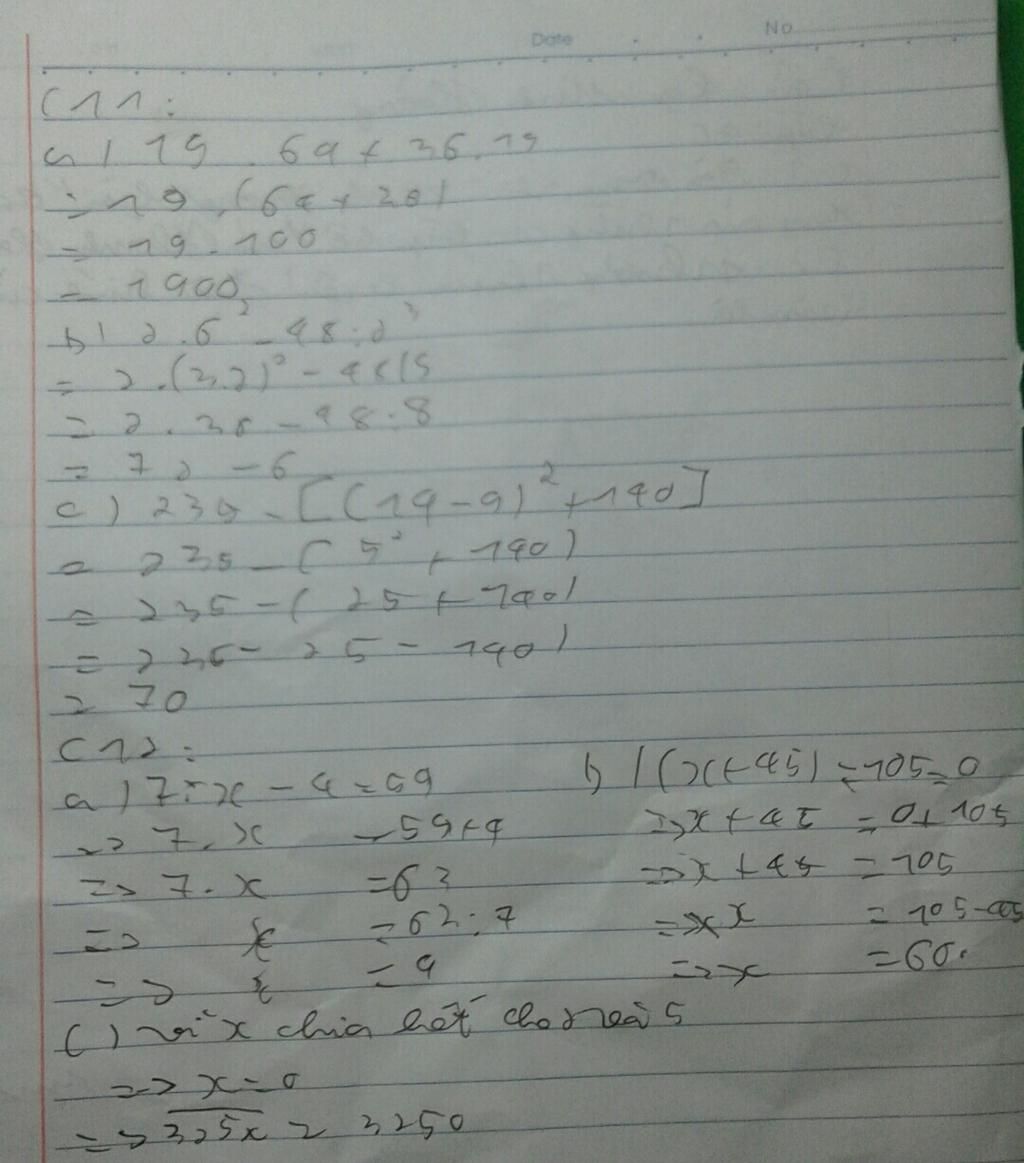 Date
No
C11:
a) 19.64+36.19
= 19.(64+36)
= 19.100
= 1900
b) 2.6² - 48:2³
= 2.(3.2)² - 48:8
= 2.36 - 48:8
= 72 - 6
c) 235 - [(14-9)²+140]
= 235 - (5² + 140)
= 235 - (25 + 140)
= 235 - 25 - 140)
= 70
C12:
a) 7.x - 4 = 59
=> 7.x = 59+4
=> 7.x = 63
=> x = 63:7
=> x = 9
b) (x+45) - 105 = 0
=> x + 45 = 0 + 105
=> x + 45 = 105
=> x = 105-45
=> x = 60.
c) vì x chia hết cho 2 và 5
=> x = 0
=> 325x = 3250